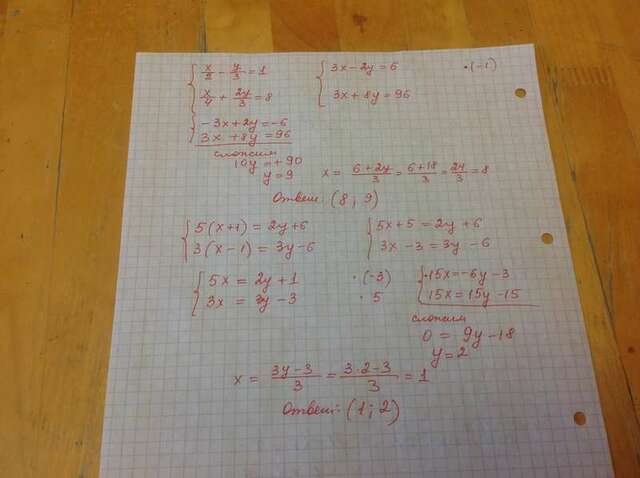 x/2 - y/3 = 1   3x - 2y = 6   ·(-1)
x/4 + 2y/3 = 8   3x + 8y = 96
-3x + 2y = -6
3x + 8y = 96
сложим
10y = +90
y = 9   x = (6+2y)/3 = (6+18)/3 = 24/3 = 8
Ответ: (8; 9)
5(x+1) = 2y+6   5x+5 = 2y+6
3(x-1) = 3y-6   3x-3 = 3y-6
5x = 2y+1   ·(-3)   -15x = -6y-3
3x = 3y-3   ·5   15x = 15y-15
сложим
0 = 9y-18
y = 2
x = (3y-3)/3 = (3·2-3)/3 = 1
Ответ: (1; 2)